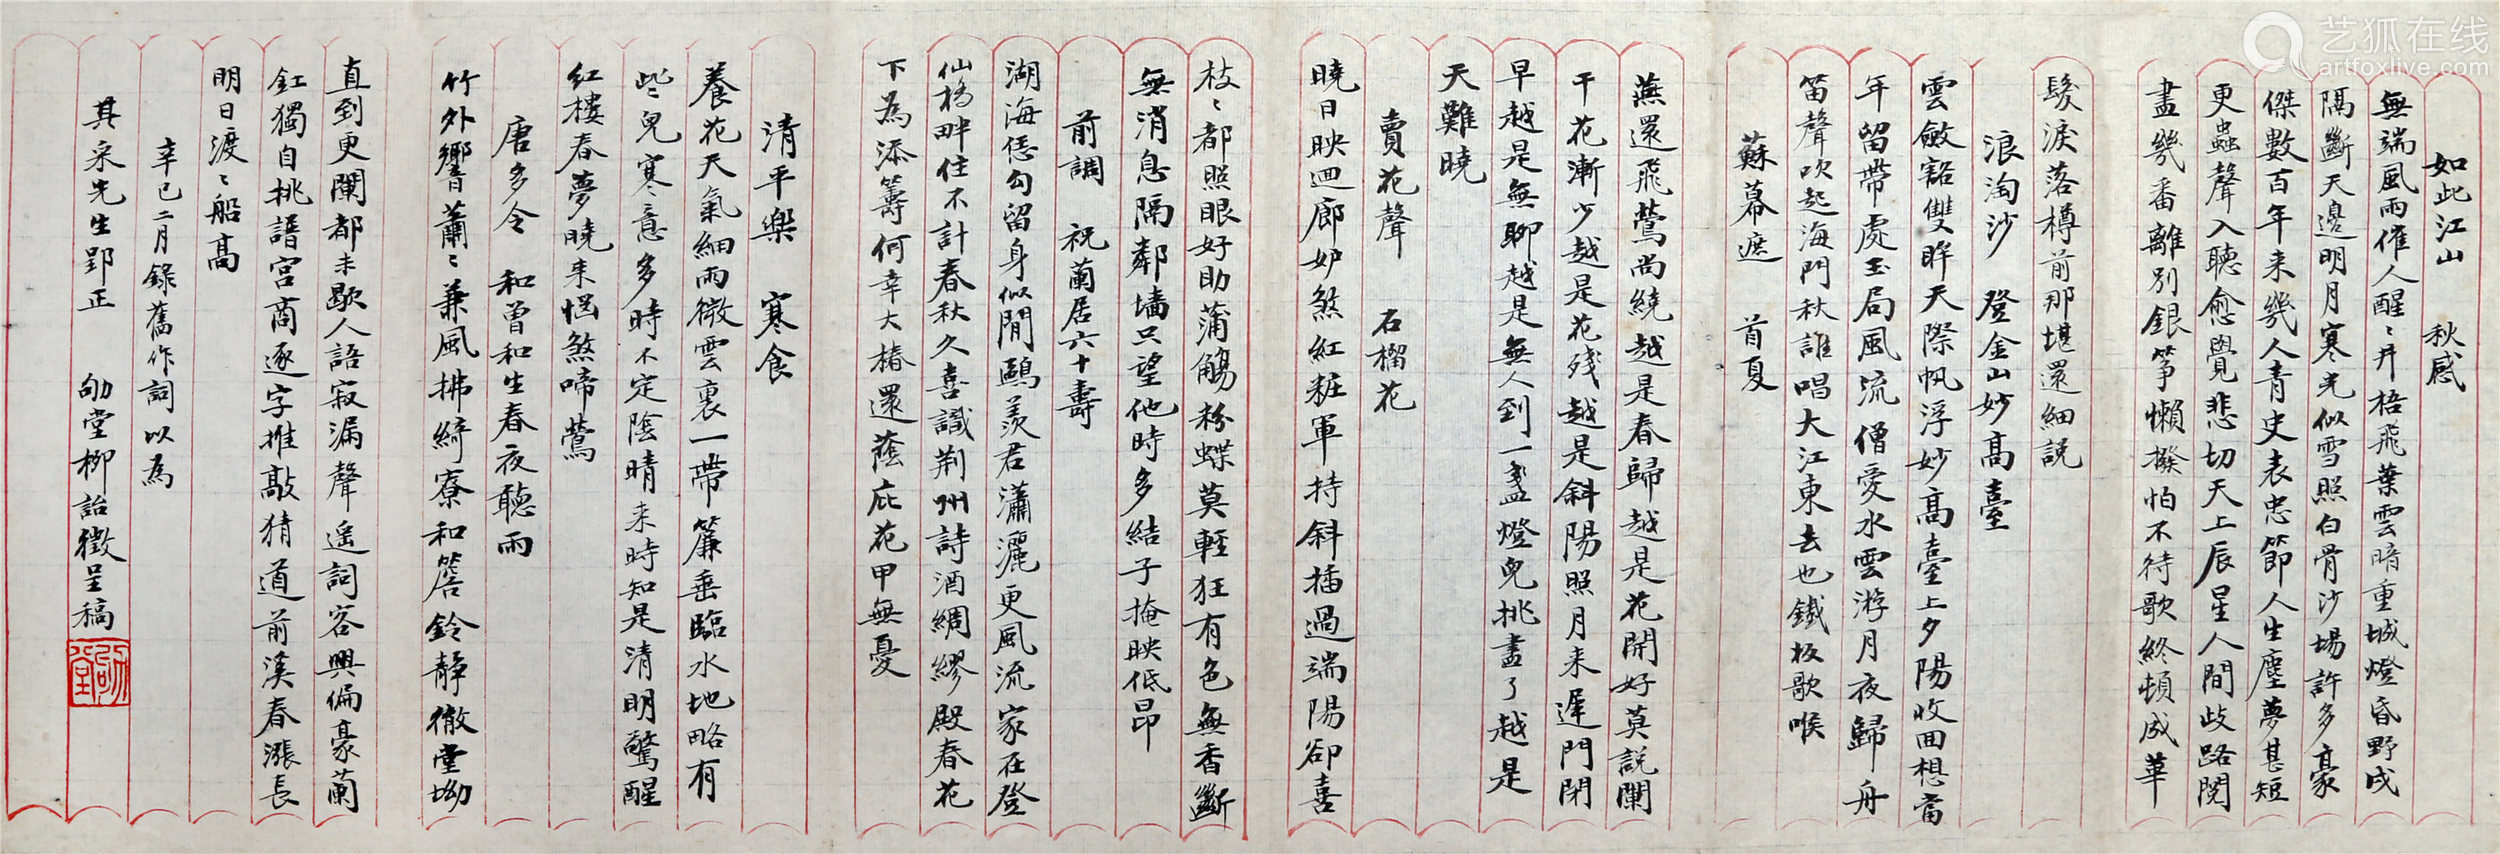 如此江山　秋感
無端風雨催人醒〻井梧飛葉雲暗重城燈昏野戍
隔斷天邊明月寒光似雪照白骨沙場許多豪
傑數百年來幾人青史表忠節人生塵夢甚短
更蟲聲入聽愈覺悲切天上辰星人間歧路閱
盡幾番離別銀箏懶撥怕不待歌終頓成華
髮淚落樽前那堪還細説
浪淘沙　登金山妙高臺
雲斂豁雙眸天際帆浮妙高臺上夕陽收回想當
年留帶處玉局風流僧愛水雲游月夜歸舟
笛聲吹起海門秋誰唱大江東去也鐵板歌喉
蘇幕遮　首夏
燕還飛鶯尚繞越是春歸越是花開好莫説闌
干花漸少越是花殘越是斜陽照月来遲門閉
早越是無聊越是無人到一盞燈兒挑盡了越是
天難曉
賣花聲　石榴花
曉日映迴廊妒煞紅粧軍持斜插過端陽卻喜
枝〻都照眼好助蒲觴粉蝶莫輕狂有色無香斷
無消息隔鄰墻只望他時多結子掩映低昂
前調　祝蘭居六十壽
湖海恁勾留身似閒鷗羨君瀟灑更風流家在登
仙橋畔住不計春秋久喜識荆州詩酒綢繆殿春花
下為添籌何幸大椿還蔭庇花甲無憂
清平樂　寒食
養花天氣細雨微雲裏一帶簾垂臨水地略有
些〻兒寒意多時不定陰晴来時知是清明驚醒
紅樓春夢曉来惱煞啼鶯
唐多令　和曾和生春夜聽雨
竹外響蕭〻兼風拂綺寮和簷鈴靜徹堂坳
直到更闌都未歇人語寂漏聲遥詞客興偏豪蘭
釭獨自挑譜宮商逐字推敲猜道前溪春漲長
明日渡〻船高
辛巳二月錄舊作詞以為
其采先生郢正　劬堂柳詒徵呈稿
劬堂
艺狐在线
artfoxlive.com